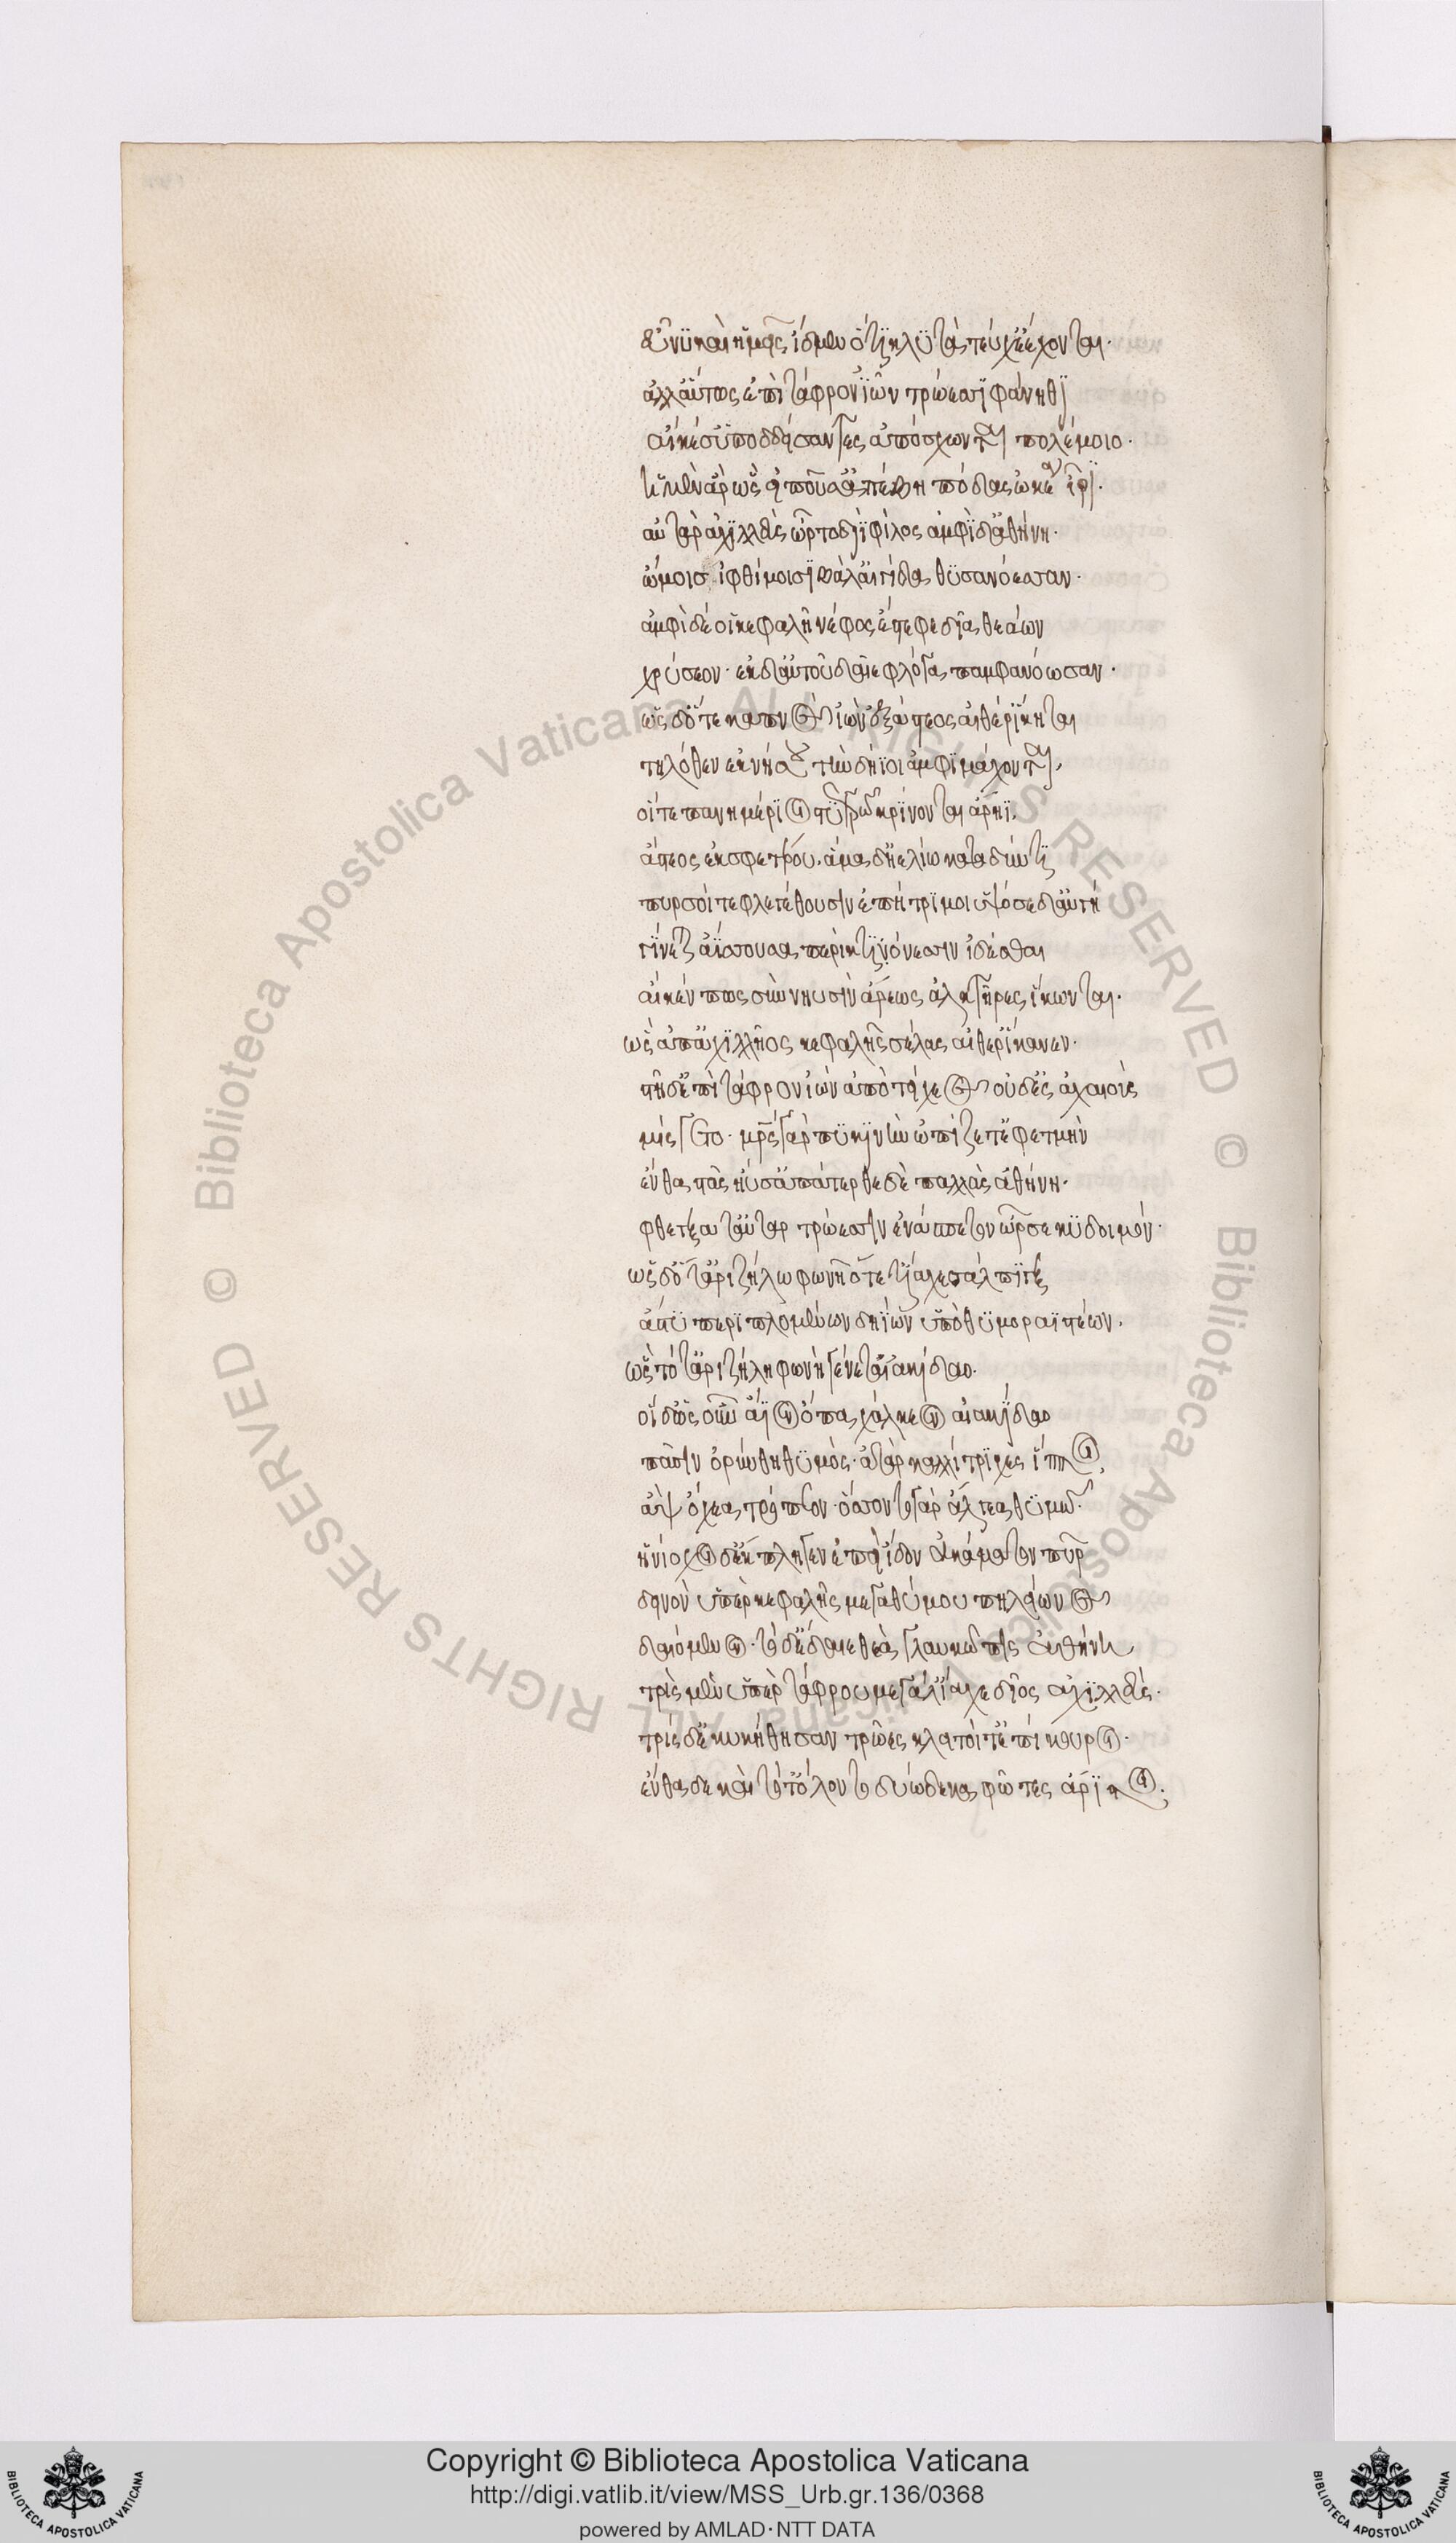 εὖ νυ καὶ ἡμεῖς ἴδμεν ὅτι κλυτὰ τεύχε' ἔχονται·
ἀλλ' αὔτως ἐπὶ τάφρον ἰὼν τρώεσσι φάνηθι
αἴ κέ σ' ὑποδδείσαντες ἀπόσχωνται πολέμοιο·
ἡ μὲν ἄρ ὣς εἰποῦσ' ἀπέβη πόδας ὠκέα ἶρις·
αὐτὰρ ἀχιλλεὺς ὦρτο διῒ φίλος ἀμφὶ δ' ἀθήνη·
ὤμοισ ἰφθίμοισι βάλ' αἰγίδα θυσανόεσσαν·
ἀμφὶ δέ οἱ κεφαλῇ νέφος ἔστεφε δῖα θεάων
χρύσεον· ἐκ δ' αὐτοῦ δαῖε φλόγα παμφανόωσαν·
ὡς δ' ὅτε καπνὸς ἰὼν ἐξ ἄστεος αἰθέρ' ἵκηται
τηλόθεν ἐκ νήσου τὴν δήϊοι ἀμφιμάχονται,
οἵ τε πανημέριοι στυγερῷ κρίνονται ἄρηϊ,
ἄστεος ἐκ σφετέρου· ἅμα δ' ἠελίῳ καταδύντι
πυρσοί τε φλεγέθουσιν ἐπήτριμοι ὑψόσε δ' αὐγὴ
γίνεται ἀΐσσουσα περικτιόνεσσιν ἰδέσθαι
αἴ κέν πως σὺν νηυσὶν ἄρεως ἀλκτῆρες ἵκωνται·
ὣς ἀπ' ἀχιλλῆος κεφαλῆς σέλας αἰθέρ' ἵκανεν·
στῆ δ' ἐπὶ τάφρον ἰὼν ἀπὸ τείχεος οὐδ' ἐς ἀχαιοὺς
μίσγετο· μητρὸς γὰρ πυκινὴν ὠπίζετ' ἐφετμὴν
ἔνθα στὰς ἤϋσ' ἀπάτερθε δὲ παλλὰς ἀθήνη·
φθέγξατ' αὐτὰρ τρώεσσιν ἐν ἄσπετον ὦρσε κυδοιμόν·
ὡς δ' ὅτ' ἀριζήλω φωνὴ ὅτε τ' ἴαχε σάλπιγξ
ἄστυ περιπλομένων δηΐων ὕπο θυμοραϊστέων·
ὣς τότ' ἀριζήλη φωνὴ γένετ' αἰακίδαο·
οἱ δ' ὡς οὖν ἄϊον ὄπα χάλκεον αἰακίδαο
πᾶσιν ὀρίνθη θυμός· ἀτὰρ καλλίτριχες ἵπποι
ἂψ ὄχεα τρόπεον· ὄσσοντο γὰρ ἄλγεα θυμῷ·
ἡνίοχοι δ' ἔκπληγεν ἐπεὶ ἴδον ἀκάματον πῦρ
δεινὸν ὑπὲρ κεφαλῆς μεγαθύμου πηλείωνος
δαιόμενον· τὸ δ' ἔδαιε θεὰ γλαυκῶπις ἀθήνη
τρὶς μὲν ὑπὲρ τάφρου μεγάλ' ἴαχε δῖος ἀχιλλεύς·
τρὶς δ' ἐκυκήθησαν τρῶες κλειτοί τ' ἐπίκουροι·
ἔνθα δὲ καὶ τότ' ὄλοντο δυώδεκα φῶτες ἄριστοι·
Copyright © Biblioteca Apostolica Vaticana
http://digi.vatlib.it/view/MSS_Urb.gr.136/0368
powered by AMLAD·NTT DATA